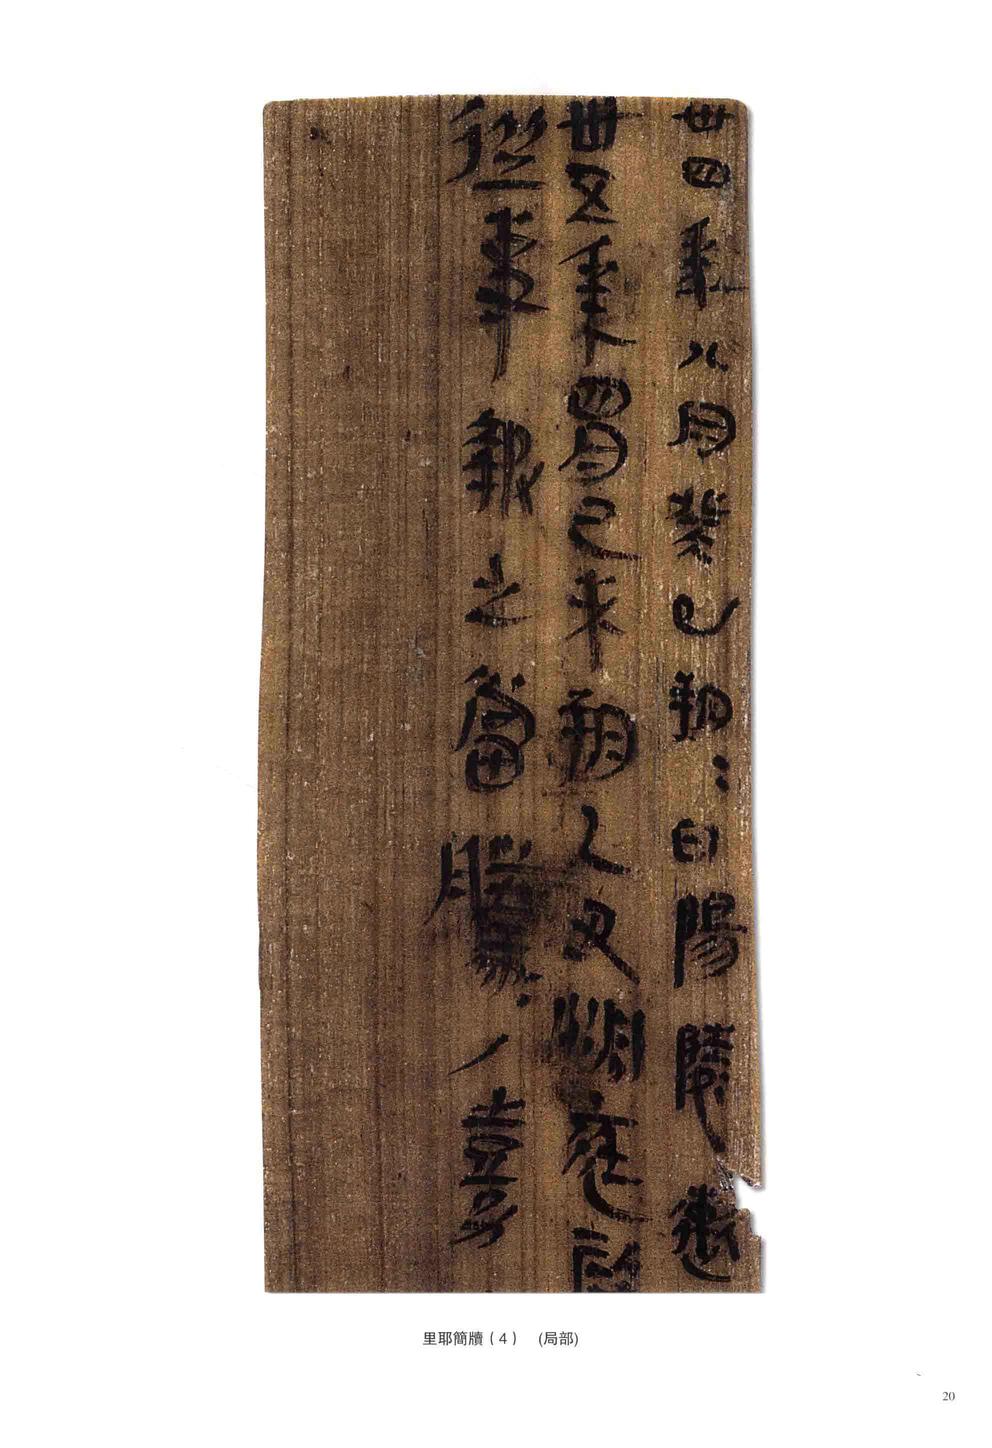 丗四年八月癸巳朔=日陽陵遬
丗五年四月己未朔乙丑洞庭叚
從事報之當騰ノ嘉
里耶簡牘（4）　(局部)
20